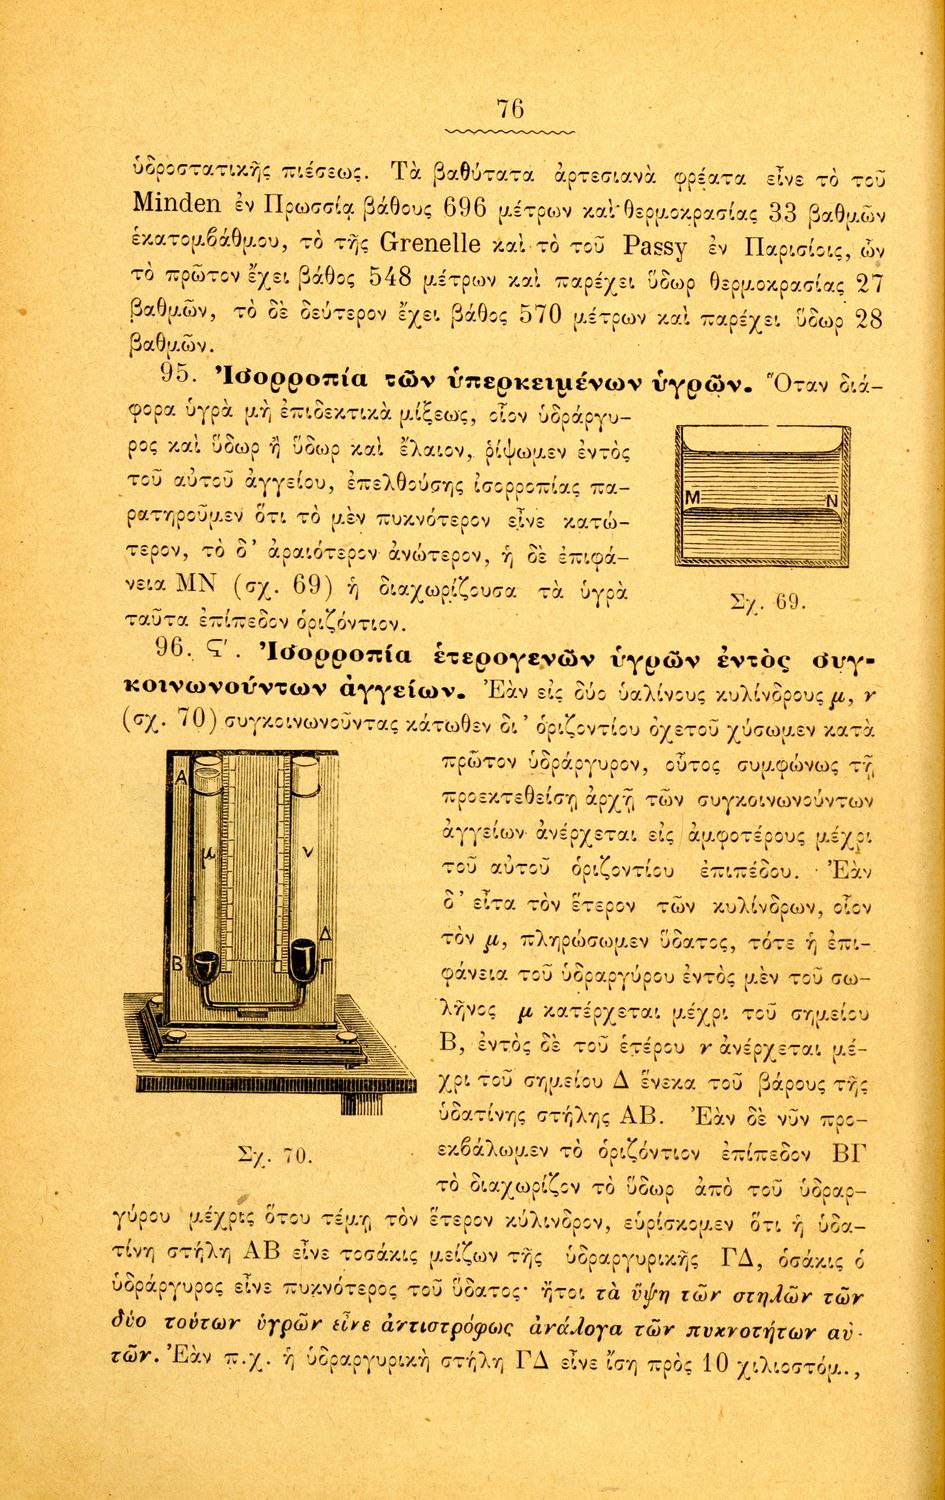 76
ὑδροστατικῆς πιέσεως. Τὰ βαθύτατα ἀρτεσιανὰ φρέατα εἶνε τὸ τοῦ
Minden ἐν Πρωσσίᾳ βάθους 696 μέτρων καὶ θερμοκρασίας 33 βαθμῶν
ἑκατομβάθμου, τὸ τῆς Grenelle καὶ τὸ τοῦ Passy ἐν Παρισίοις, ὧν
τὸ πρῶτον ἔχει βάθος 548 μέτρων καὶ παρέχει ὕδωρ θερμοκρασίας 27
βαθμῶν, τὸ δὲ δεύτερον ἔχει βάθος 570 μέτρων καὶ παρέχει ὕδωρ 28
βαθμῶν.
95. Ἰσορροπία τῶν ὑπερκειμένων ὑγρῶν. Ὅταν διά-
φορα ὑγρὰ μὴ ἐπιδεκτικὰ μίξεως, οἷον ὑδράργυ-
ρος καὶ ὕδωρ ἢ ὕδωρ καὶ ἔλαιον, ῥίψωμεν ἐντὸς
τοῦ αὐτοῦ ἀγγείου, ἐπελθούσης ἰσορροπίας πα-
ρατηροῦμεν ὅτι τὸ μὲν πυκνότερον εἶνε κατώ-
τερον, τὸ δ' ἀραιότερον ἀνώτερον, ἡ δὲ ἐπιφά-
νεια ΜΝ (σχ. 69) ἡ διαχωρίζουσα τὰ ὑγρὰ
ταῦτα ἐπίπεδον ὁριζόντιον.
M N
Σχ. 69.
96. Ϛ'. Ἰσορροπία ἑτερογενῶν ὑγρῶν ἐντὸς συγ-
κοινωνούντων ἀγγείων. Ἐὰν εἰς δύο ὑαλίνους κυλίνδρους μ, ν
(σχ. 70) συγκοινωνοῦντας κάτωθεν δι' ὁριζοντίου ὀχετοῦ χύσωμεν κατὰ
πρῶτον ὑδράργυρον, οὗτος συμφώνως τῇ
προεκτεθείσῃ ἀρχῇ τῶν συγκοινωνούντων
ἀγγείων ἀνέρχεται εἰς ἀμφοτέρους μέχρι
τοῦ αὐτοῦ ὁριζοντίου ἐπιπέδου. Ἐὰν
δ' εἶτα τὸν ἕτερον τῶν κυλίνδρων, οἷον
τὸν μ, πληρώσωμεν ὕδατος, τότε ἡ ἐπι-
φάνεια τοῦ ὑδραργύρου ἐντὸς μὲν τοῦ σω-
λῆνος μ κατέρχεται μέχρι τοῦ σημείου
Β, ἐντὸς δὲ τοῦ ἑτέρου ν ἀνέρχεται μέ-
χρι τοῦ σημείου Δ ἕνεκα τοῦ βάρους τῆς
ὑδατίνης στήλης ΑΒ. Ἐὰν δὲ νῦν προ-
εκβάλωμεν τὸ ὁριζόντιον ἐπίπεδον ΒΓ
τὸ διαχωρίζον τὸ ὕδωρ ἀπὸ τοῦ ὑδραρ-
Α
μ ν
Δ
Β Γ
Σχ. 70.
γύρου μέχρις ὅτου τέμῃ τὸν ἕτερον κύλινδρον, εὑρίσκομεν ὅτι ἡ ὑδα-
τίνη στήλη ΑΒ εἶνε τοσάκις μείζων τῆς ὑδραργυρικῆς ΓΔ, ὁσάκις ὁ
ὑδράργυρος εἶνε πυκνότερος τοῦ ὕδατος· ἤτοι τὰ ὕψη τῶν στηλῶν τῶν
δύο τούτων ὑγρῶν εἶνε ἀντιστρόφως ἀνάλογα τῶν πυκνοτήτων αὐ-
τῶν. Ἐὰν π.χ. ἡ ὑδραργυρικὴ στήλη ΓΔ εἶνε ἴση πρὸς 10 χιλιοστόμ.,